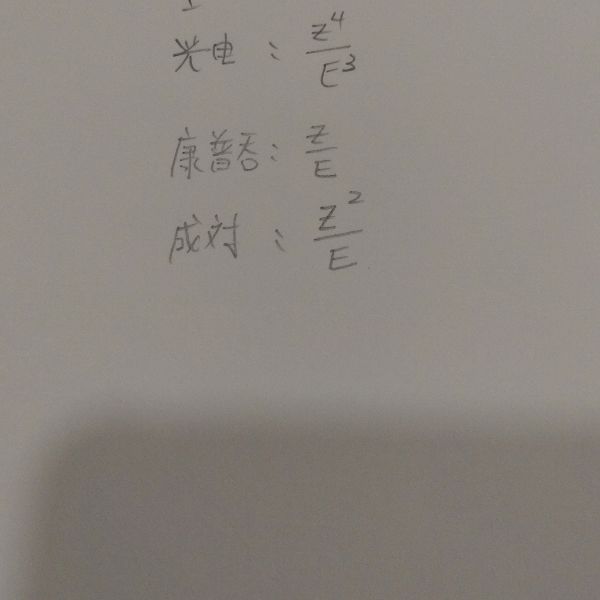 光电：Z⁴/E³
康普吞：Z/E
成対：Z²/E